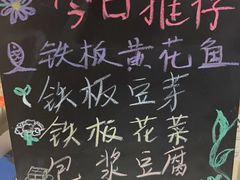 今日推荐
铁板黄花鱼
铁板豆芽
铁板花菜
包浆豆腐